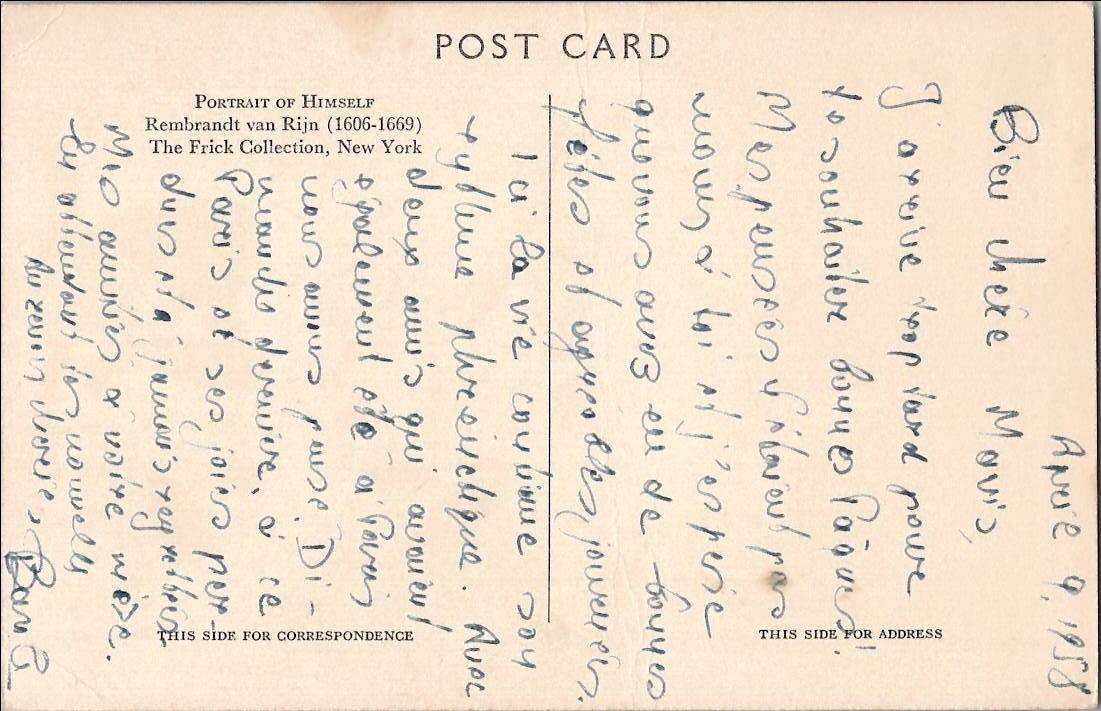 POST CARD
PORTRAIT OF HIMSELF
Rembrandt van Rijn (1606-1669)
The Frick Collection, New York
THIS SIDE FOR CORRESPONDENCE
THIS SIDE FOR ADDRESS
9, 1958
Bien chère
J'arrive trop tard pour
te souhaiter bonnes Pâques!
Mes pensées pas
moins à toi et j'espère
que vous avez eu de bonnes
fêtes et agréables journées.
Ici la vie continue son
rythme. Avec
deux amis qui avaient
également été à Paris
nous avons passé Di-
manche dernier, à ce
Paris et ses joies per-
dues et à jamais
Mes amitiés à votre mère.
En attendant tes nouvelles